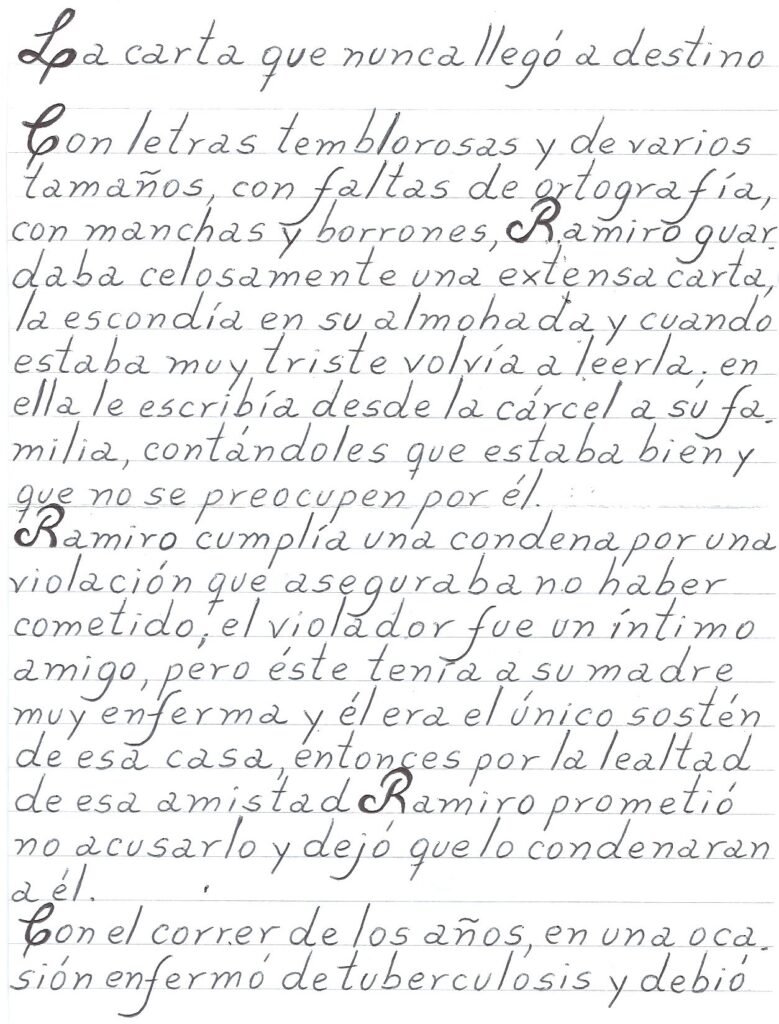 La carta que nunca llegó a destino
Con letras temblorosas y de varios
tamaños, con faltas de ortografía,
con manchas y borrones, Ramiro guar-
daba celosamente una extensa carta,
la escondía en su almohada y cuando
estaba muy triste volvía a leerla; en
ella le escribía desde la cárcel a su fa-
milia, contándoles que estaba bien y
que no se preocupen por él.
Ramiro cumplía una condena por una
violación que aseguraba no haber
cometido; el violador fue un íntimo
amigo, pero éste tenía a su madre
muy enferma y él era el único sostén
de esa casa, entonces por la lealtad
de esa amistad Ramiro prometió
no acusarlo y dejó que lo condenaran
a él.
Con el correr de los años, en una oca-
sión enfermó de tuberculosis y debió